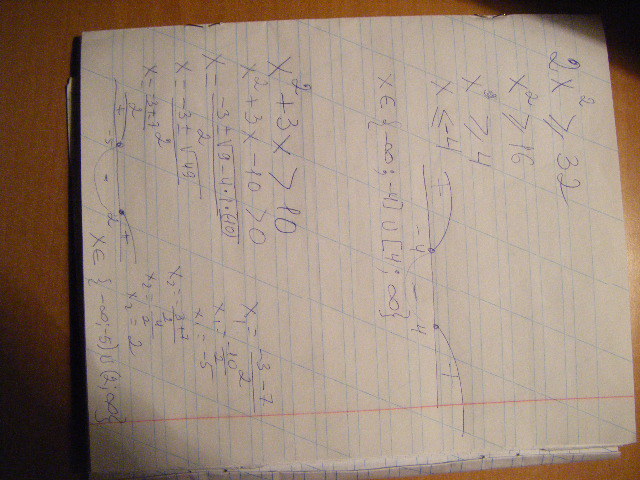 2x² ≥ 32
x² ≥ 16
x ≥ 4
x ≤ -4
+ -4 - 4 +
x ∈ {-∞;-4] ∪ [4;∞}
x² + 3x > 10
x² + 3x - 10 > 0
x = -3 ± √9-4·1·(-10) / 2
x = -3 ± √49 / 2
x = -3 ± 7 / 2
x₁ = -3-7 / 2
x₁ = -10 / 2
x₁ = -5
x₂ = -3+7 / 2
x₂ = 4 / 2
x₂ = 2
+ -5 - 2 +
x ∈ {-∞;-5) ∪ (2;∞}